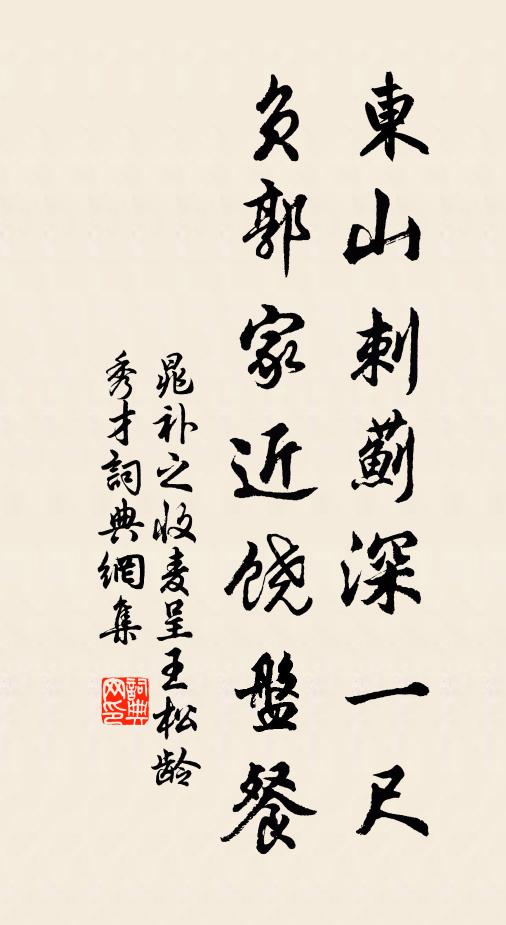 東山刺薊深一尺
負郭家近饶盤餐
晁补之收麦呈王松龄秀才
詞典網集
詞典网印